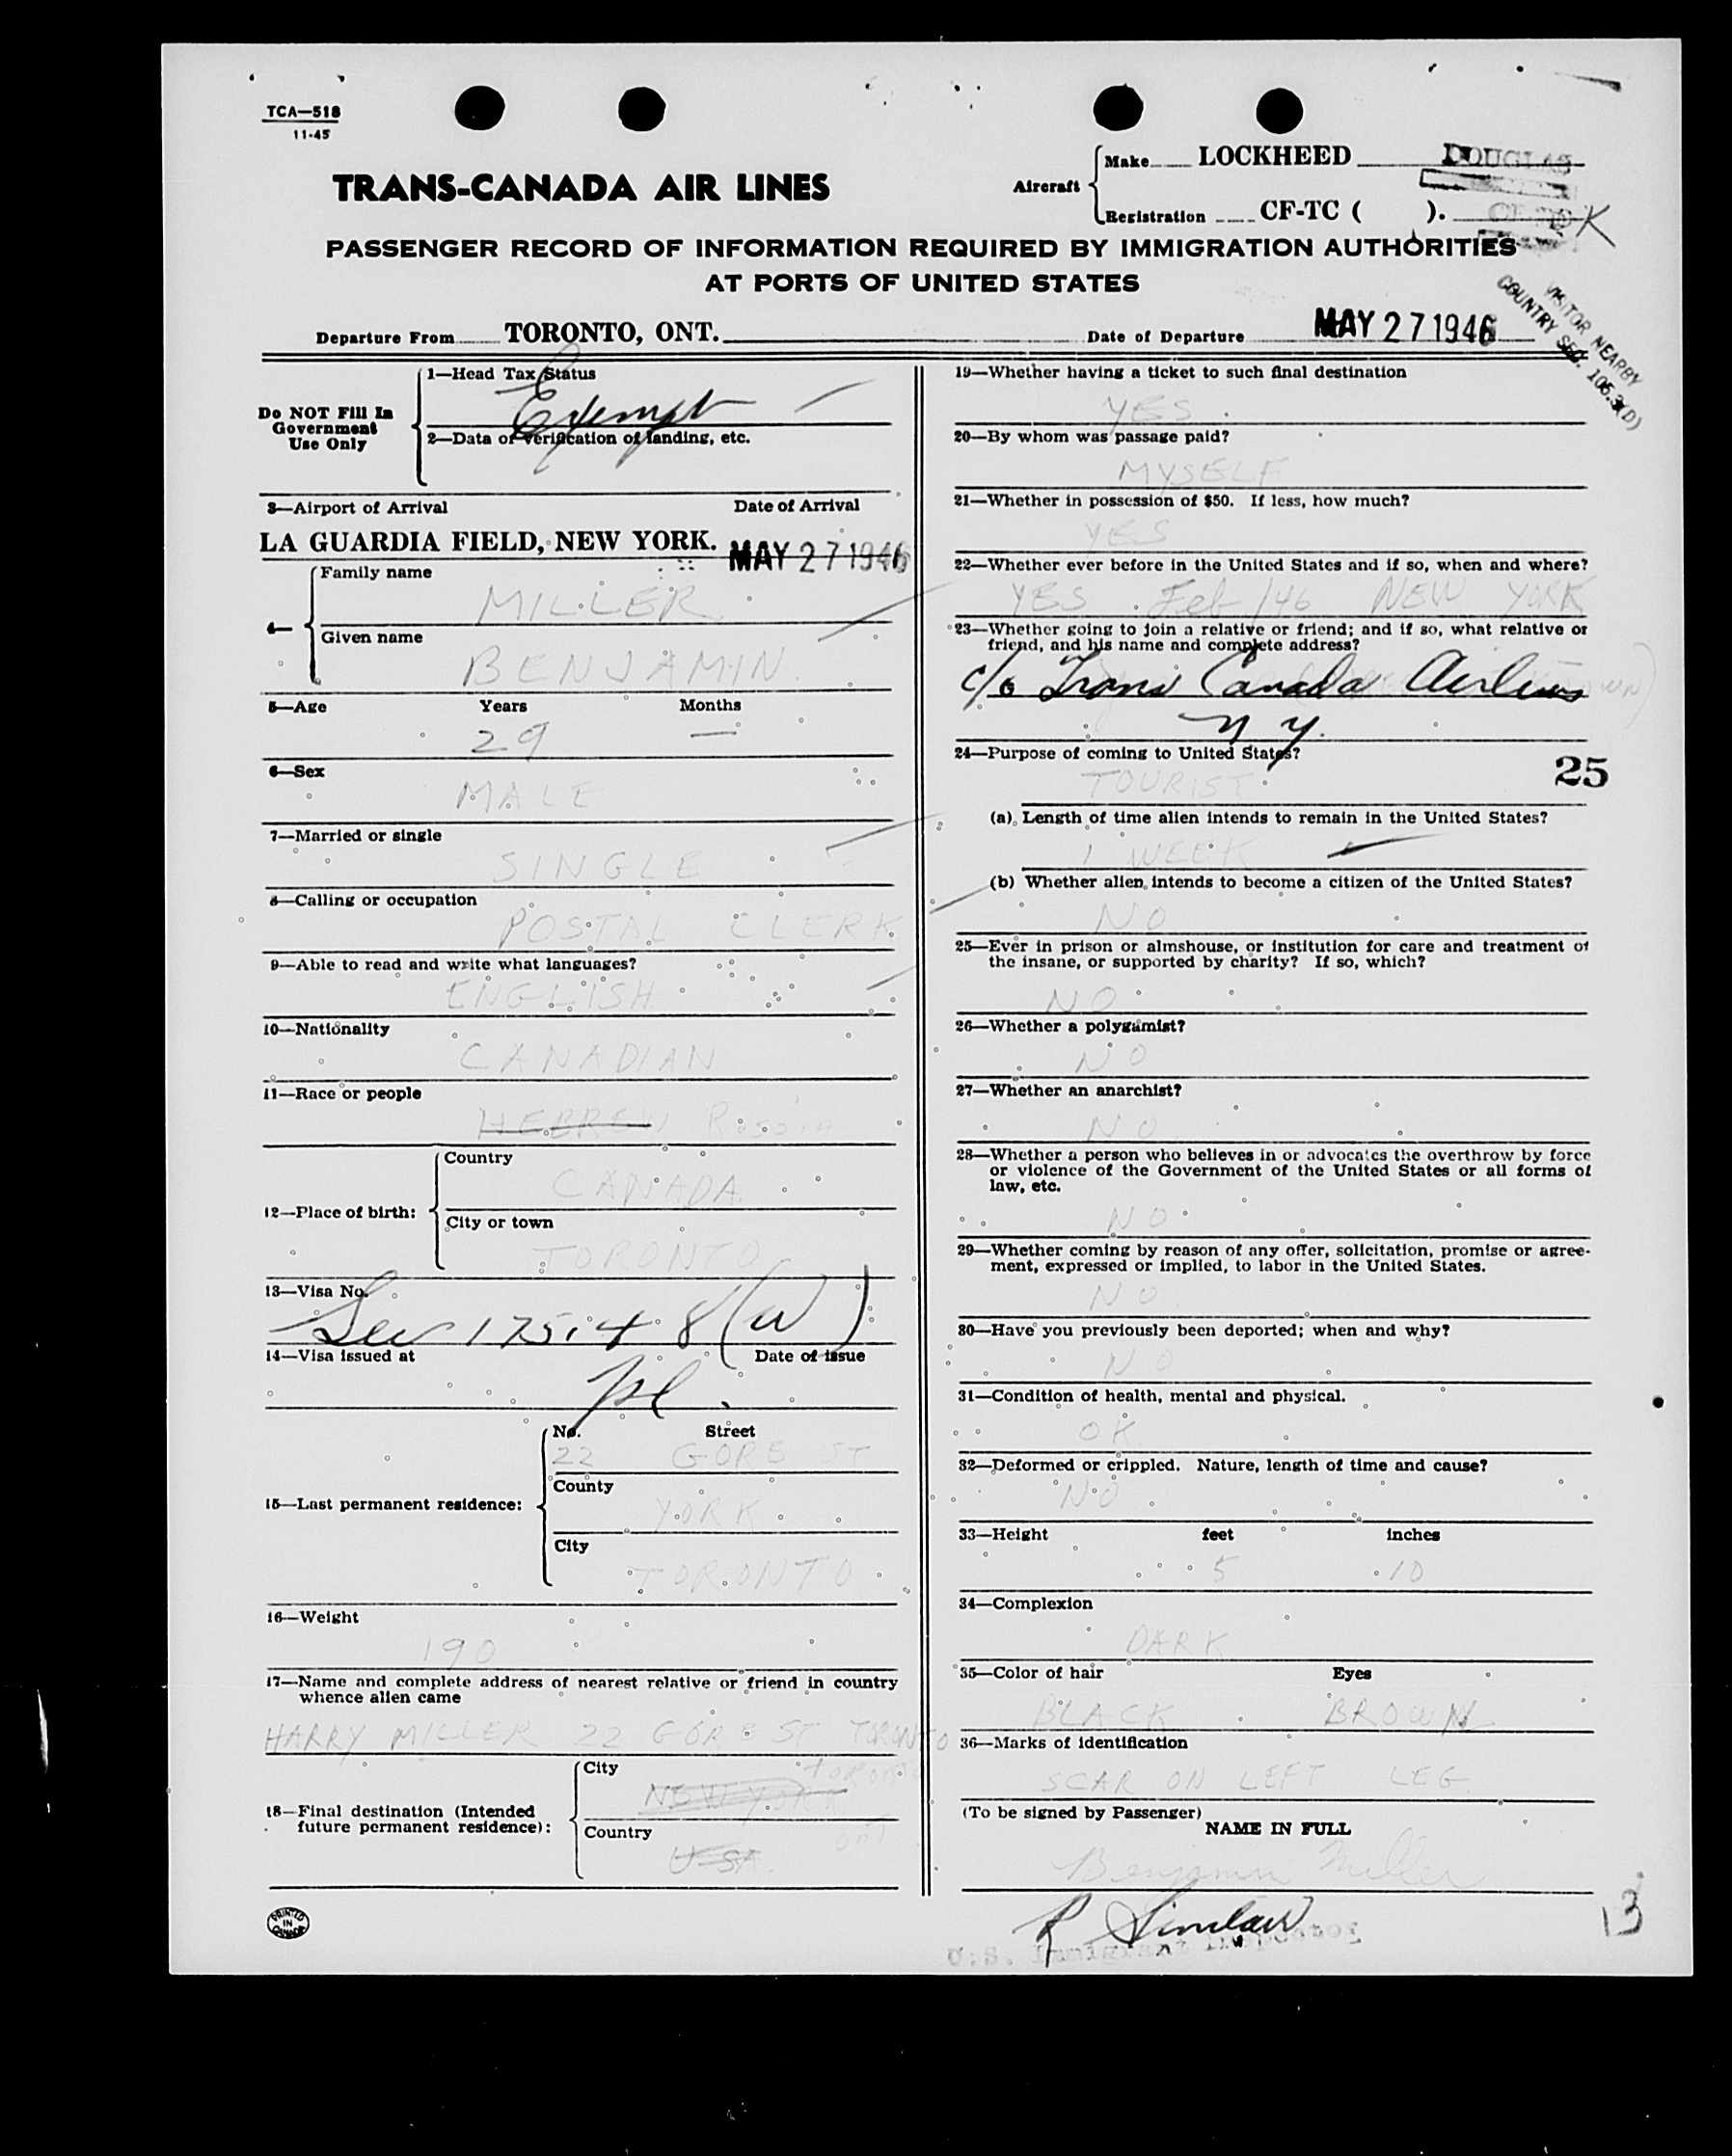 TCA—518
11-45
TRANS-CANADA AIR LINES
Aircraft
Make LOCKHEED DOUGLAS
Registration CF-TC ( ). K
PASSENGER RECORD OF INFORMATION REQUIRED BY IMMIGRATION AUTHORITIES
AT PORTS OF UNITED STATES
VISITOR NEARBY
COUNTRY SEC. 105.3(D)
Departure From TORONTO, ONT. Date of Departure MAY 27 1946
Do NOT Fill In
Government
Use Only
1—Head Tax Status
Exempt
2—Data or verification of landing, etc.
3—Airport of Arrival Date of Arrival
LA GUARDIA FIELD, NEW YORK. MAY 27 1946
4—
Family name
MILLER
Given name
BENJAMIN
5—Age Years Months
29 —
6—Sex
MALE
7—Married or single
SINGLE
8—Calling or occupation
POSTAL CLERK
9—Able to read and write what languages?
ENGLISH
10—Nationality
CANADIAN
11—Race or people
HEBREW Russia
12—Place of birth:
Country
CANADA
City or town
TORONTO
13—Visa No.
Sec 175.48(W)
14—Visa issued at Date of issue
15—Last permanent residence:
No. Street
22 GORE ST
County
YORK
City
TORONTO
16—Weight
190
17—Name and complete address of nearest relative or friend in country
whence alien came
HARRY MILLER 22 GORE ST TORONTO
18—Final destination (Intended
future permanent residence):
City
NEW YORK Toronto
Country
USA Ont
PRINTED
IN
CANADA
19—Whether having a ticket to such final destination
YES
20—By whom was passage paid?
MYSELF
21—Whether in possession of $50. If less, how much?
YES
22—Whether ever before in the United States and if so, when and where?
YES Feb/46 NEW YORK
23—Whether going to join a relative or friend; and if so, what relative or
friend, and his name and complete address?
c/o Trans Canada Airlines
N Y.
24—Purpose of coming to United States?
TOURIST
25
(a) Length of time alien intends to remain in the United States?
1 WEEK
(b) Whether alien intends to become a citizen of the United States?
NO
25—Ever in prison or almshouse, or institution for care and treatment of
the insane, or supported by charity? If so, which?
NO
26—Whether a polygamist?
NO
27—Whether an anarchist?
NO
28—Whether a person who believes in or advocates the overthrow by force
or violence of the Government of the United States or all forms of
law, etc.
NO
29—Whether coming by reason of any offer, solicitation, promise or agree-
ment, expressed or implied, to labor in the United States.
NO
30—Have you previously been deported; when and why?
NO
31—Condition of health, mental and physical.
OK
32—Deformed or crippled. Nature, length of time and cause?
NO
33—Height feet inches
5 10
34—Complexion
DARK
35—Color of hair Eyes
BLACK BROWN
36—Marks of identification
SCAR ON LEFT LEG
(To be signed by Passenger)
NAME IN FULL
Benjamin Miller
R Sinclair
U.S. Immigrant Inspector
13